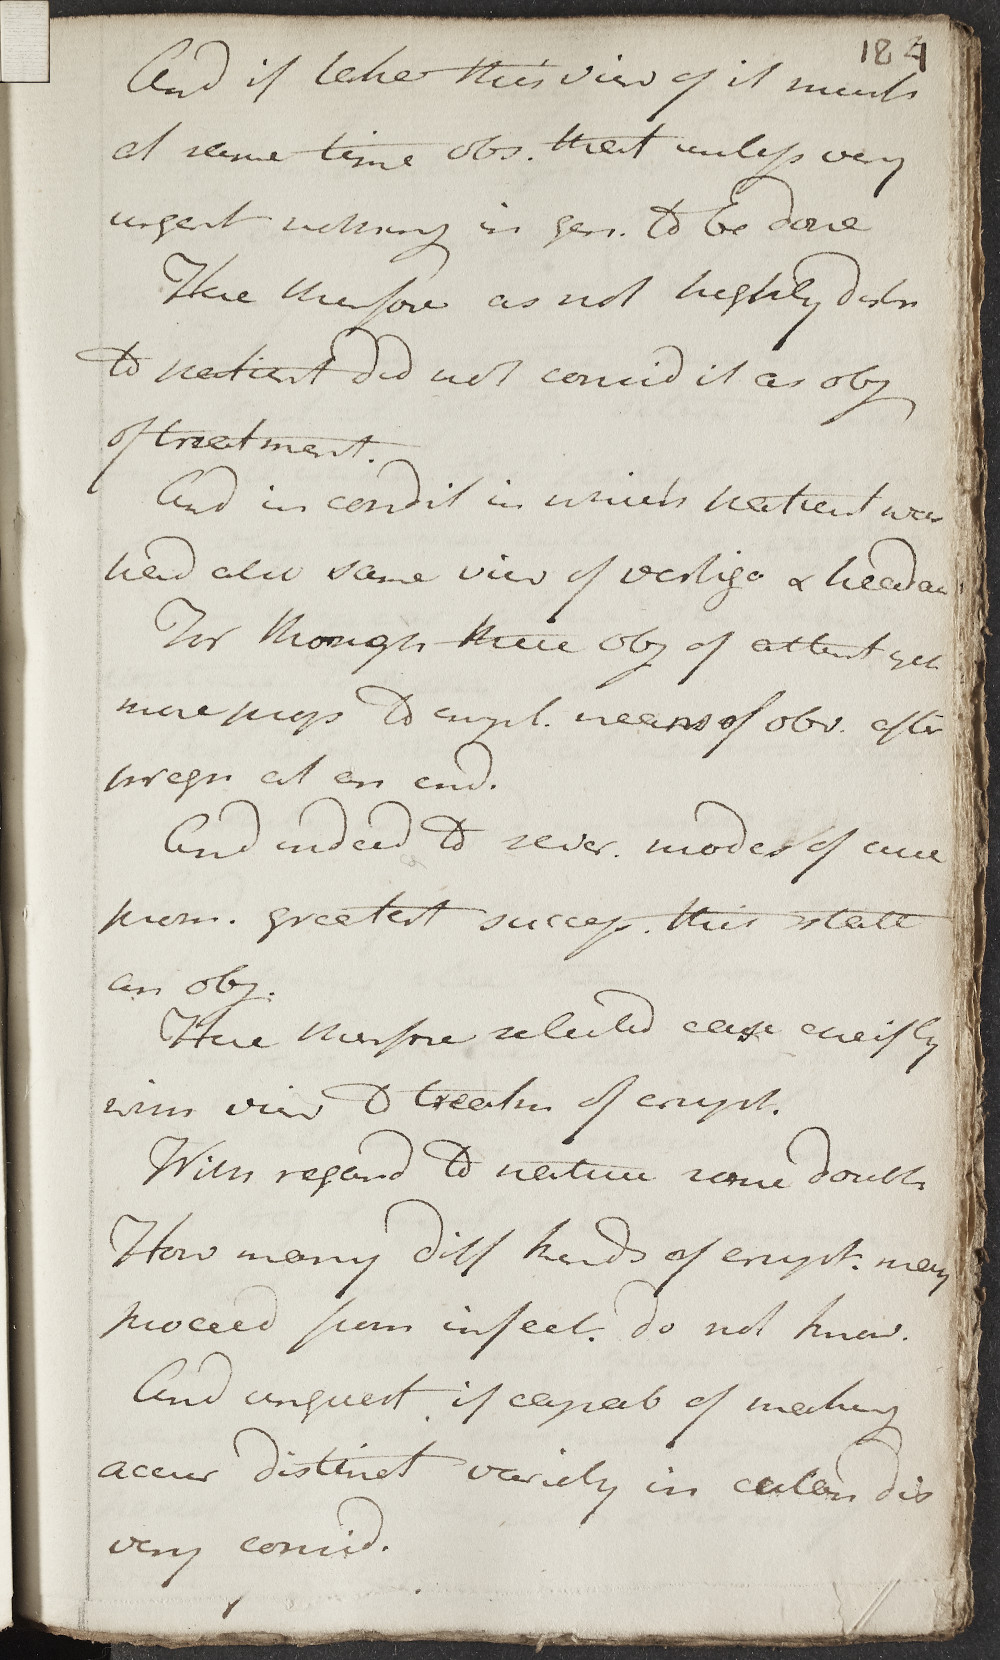 184
And if take this view of it must
at same time obs. that unless very
urgent nothing in gen. to be done
Here therefore as not highly distr
to patient did not consid it as obj
of treatment.
And in condit in which patient was
had also same view of vertigo & headac
For though these obj of attent yet
more prop to empl. means of obv. after
pregn at an end.
And indeed to sever. modes of cure
prom. greatest success. this state
an obj.
Here therefore selected case chiefly
with view to treatm of erupt.
With regard to nature some doubt
How many diff kinds of erupt. may
proceed from infect. do not know.
And unquest. if capab of making
accur distinct variety in cutan dis
very consid.